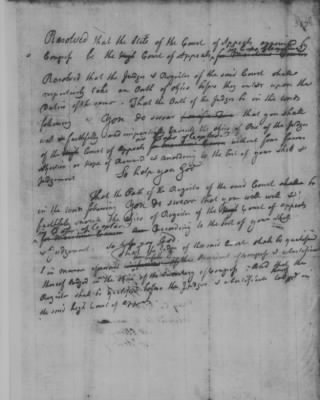 Resolved that the Stile of the Court of Appeals appointed by
Congress be the Court of Appeals
Resolved that the Judges & Register of the said Court shall
respectively take an Oath of Office before they enter upon the
Duties of the same. That the Oath of the Judges be in the words
following. You do swear that you shall
well & faithfully and impartially execute the Office of one of the Judges
of the Court of Appeals without fear favor
affection or hope of Reward & according to the best of your skill &
Judgement. So help you God
That the Oath of the Register of the said Court shall be
in the words following You do swear that you will well &
faithfully execute the Office of Register of the Court of Appeals
according to the best of your skill
& Judgement. so help you God
That of the said Court shall be qualified
in manner of Congress &
thereof lodged in the Office of the Secretary of Congress. And that the
Register shall be qualified before the Judges & a
the said high Court of Appeals